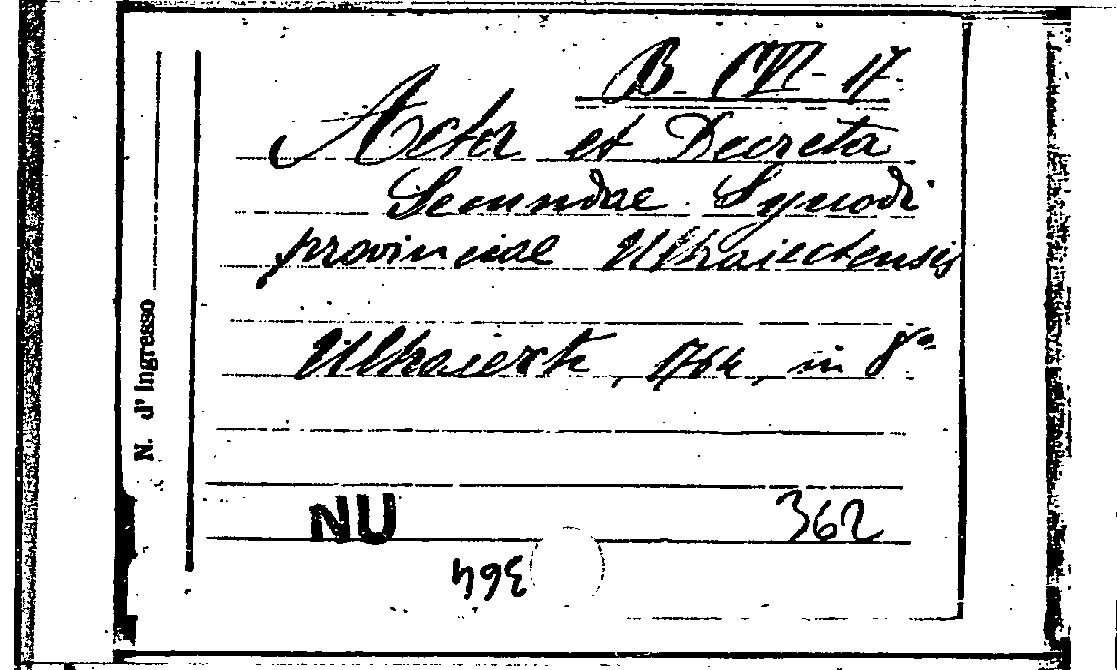 B. CVI - 17.
Acta et Decreta
Secundae Synodi
provinciae Ultraiectensis
Ultraiecti, 1764, in 8°
N. d'Ingresso
NU
362
364